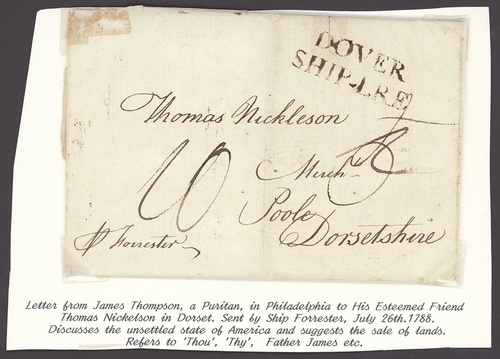 DOVER
SHIP-LRE
Thomas Nickleson
10
Merch.t
Poole
Dorsetshire
Forrester
Letter from James Thompson, a Puritan, in Philadelphia to His Esteemed Friend
Thomas Nickelson in Dorset. Sent by Ship Forrester, July 26th.1788.
Discusses the unsettled state of America and suggests the sale of lands.
Refers to 'Thou', 'Thy', Father James etc.